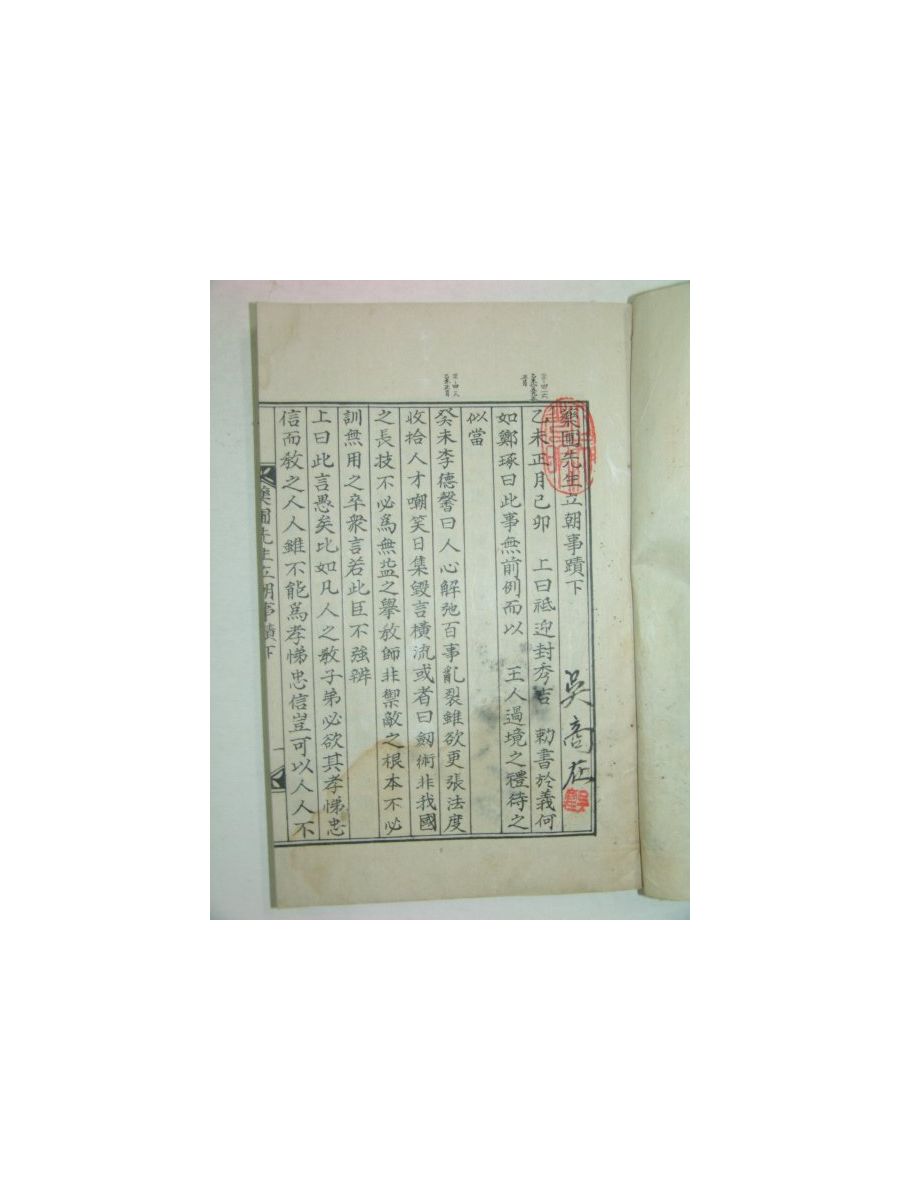 藥圃先生立朝事蹟下
吳商在
乙未正月己卯 上曰祗迎封秀吉 勅書於義何
如鄭琢曰此事無前例而以 王人過境之禮待之
似當
癸未李德馨曰人心解弛百事亂裂雖欲更張法度
收拾人才嘲笑日集毀言橫流或者曰劒術非我國
之長技不必爲無益之擧敎師非禦敵之根本不必
訓無用之卒衆言若此臣不强辨
上曰此言愚矣比如凡人之敎子弟必欲其孝悌忠
信而敎之人人雖不能爲孝悌忠信豈可以人人不
藥圃先生立朝事蹟下
一